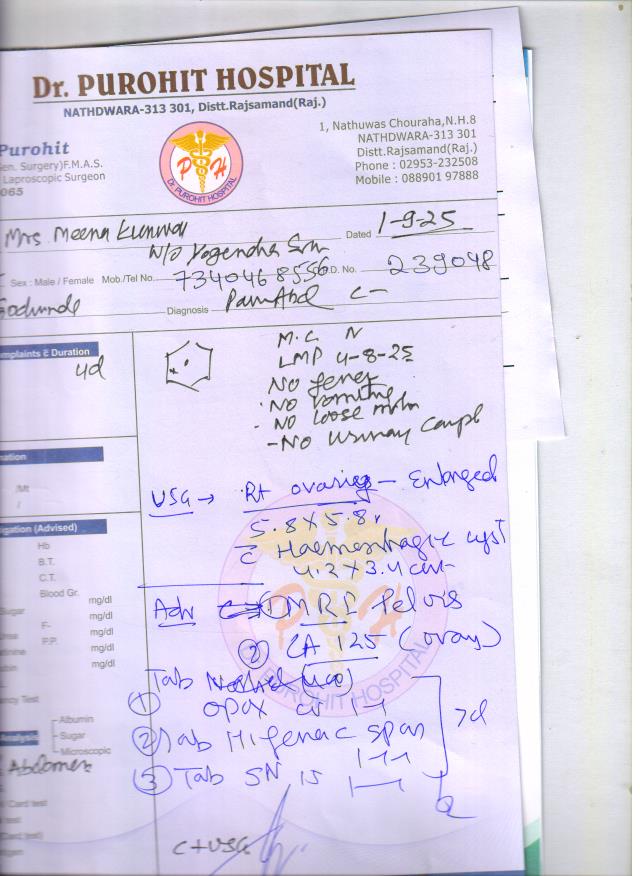 Dr. PUROHIT HOSPITAL
NATHDWARA-313 301, Distt.Rajsamand(Raj.)
Purohit
Gen. Surgery)F.M.A.S.
Laproscopic Surgeon
065
P H
Dr. PUROHIT HOSPITAL
1, Nathuwas Chouraha,N.H.8
NATHDWARA-313 301
Distt.Rajsamand(Raj.)
Phone : 02953-232508
Mobile : 088901 97888
Mrs Meena Kunwar
W/o Yogendra
Dated 1-9-25
Sex : Male / Female Mob./Tel No. 7340468556 O.P.D. No. 239048
Diagnosis Pain Abd c-
Complaints c̄ Duration
4d
M.C. N
LMP 4-8-25
No fever
- No vomiting
- No loose motn
- No urinary compl
/Mt
/
USG → Rt ovaries - Enlarged
5.8 x 5.8
c̄ Haemorrhagic cyst
4.2 x 3.4 cm
(Advised)
Hb
B.T.
C.T.
Blood Gr.
Sugar mg/dl
F- mg/dl
P.P. mg/dl
mg/dl
Adv ① MRI Pelvis
② CA 125 (ovary)
Tab
① OPOX CV 1-1
② Tab Hifenac spas
1-1-1
③ Tab SN 15 1-1
7d
Test
Albumin
Sugar
Microscopic
Analysis
Abdomen
Card test
Card test)
PUROHIT HOSPITAL
C+USG